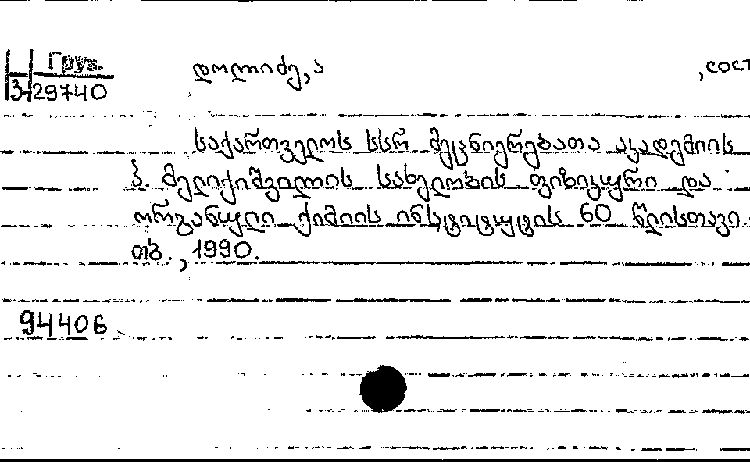 Груз.
3-29740
დოლიძე, ა
, сост
საქართველოს სსრ მეცნიერებათა აკადემიის
პ. მელიქიშვილის სახელობის ფიზიკური და
ორგანული ქიმიის ინსტიტუტის 60 წლისთავი.
თბ., 1990.
94406